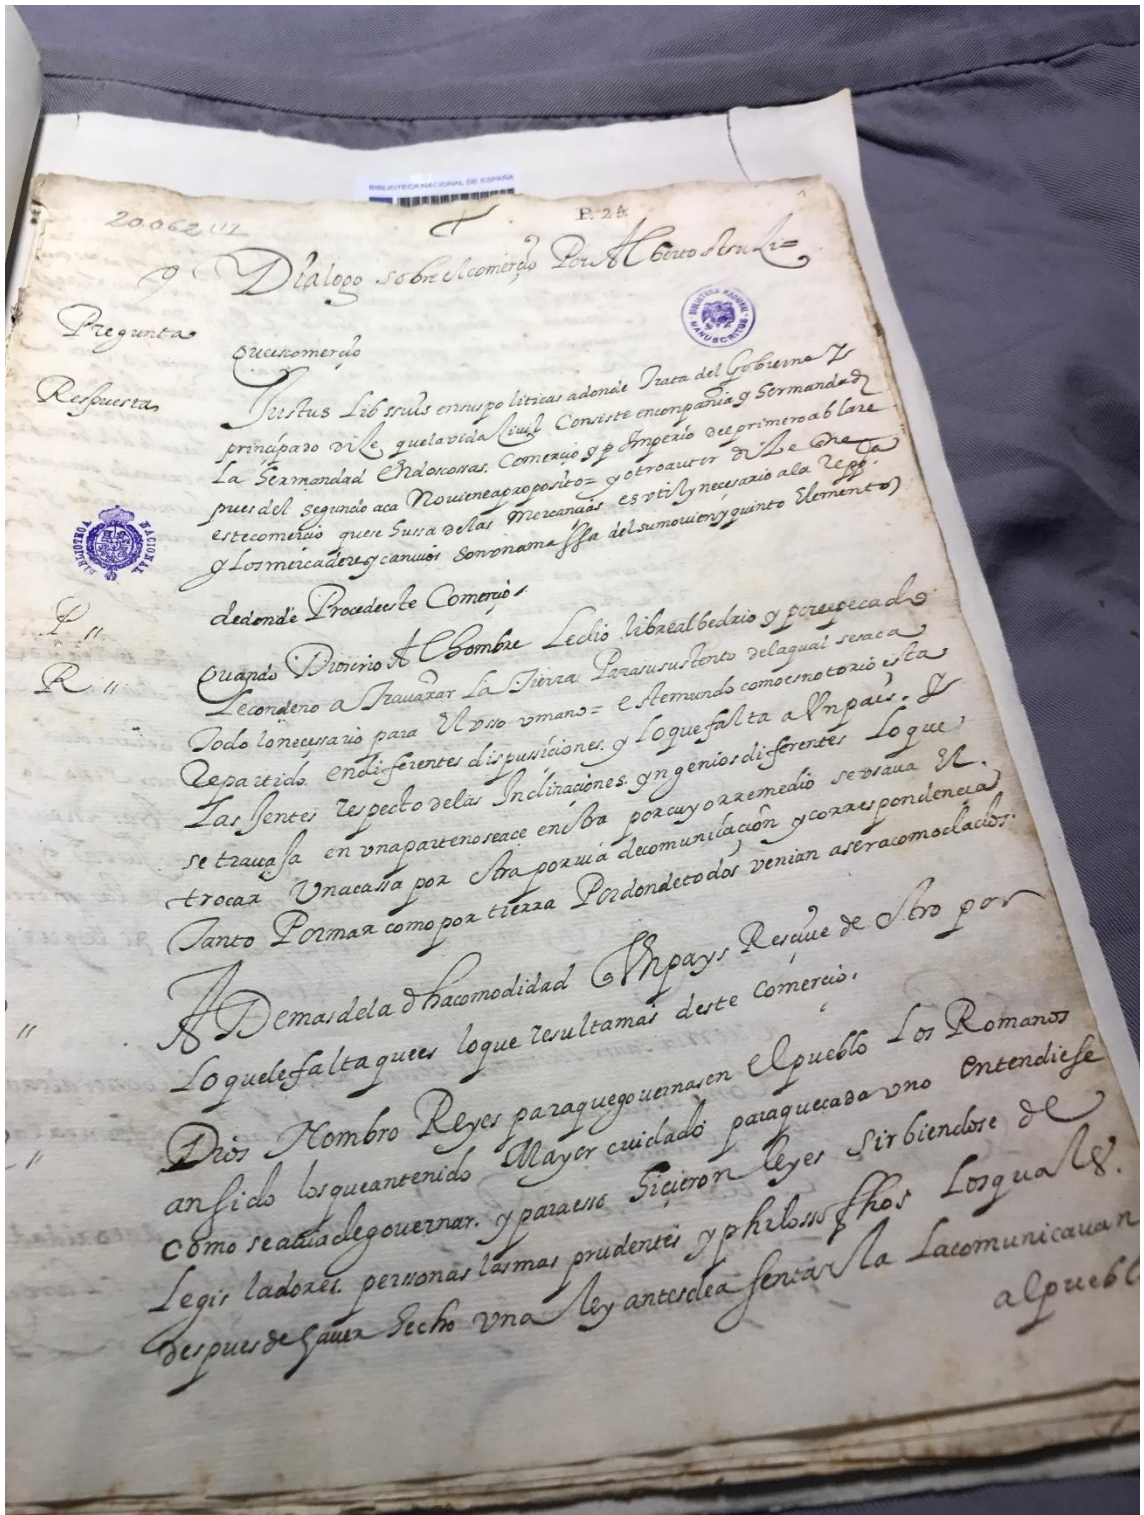 BIBLIOTECA NACIONAL DE ESPAÑA
20.062
P. 24
Dialogo sobre el comerçio Por Alberto
BIBLIOTECA NACIONAL
MANUSCRITOS
Pregunta
Que es comerçio
Respuesta
Justus Libssius en sus politicas a donde Trata del Gobierno Y
principado diçe que la vida Civil Consiste en conpañia y hermandad
La hermandad En dos cossas. Comercio y Imperio del primero ablare
pues del segundo aca No viene a proposito = y otro autor diçe Que
este comercio que se hussa de las Mercancias es vtil y necesario a la Repp.ca
y Los mercaderes y canvios son vna massa del sumo vien y quinto Elemento
BIBLIOTECA NACIONAL
P //
de donde Procede este Comerçio
R. //
Quando Dios crio Al hombre Le dio libre albedrio y por el pecado
Le condeno a Travaxar La Tierra Para su sustento de la qual se saca
Todo lo necessario para El vsso vmano = este mundo como es notorio esta
Repartido en diferentes dispussiciones. y Lo que falta a Vn pais. Y
Las Jentes respecto de las Inclinaciones. yngenios diferentes Lo que
se travaja en vna parte no se açe en otra por cuyo rremedio se vsava El
trocar Vna cassa por otra por via de comunicaçion y correspondencia
Tanto Por mar como por tierra Por donde todos venian a ser acomodados.
//
A Demas de la dha comodidad Vn pays Resçiue de otro por
Lo que le falta que es lo que resulta mas deste comercio.
//
Dios Nombro Reyes para que governasen el pueblo Los Romanos
an sido los que an tenido Mayor cuidado para que cada vno Entendiese
como se avia de governar. y para esso hiçieron leyes sirbiendose de
Legisladores. personas las mas prudentes y philossofhos Los quales.
despues de haver hecho vna ley antes de asentarla La comunicauan
al puebl